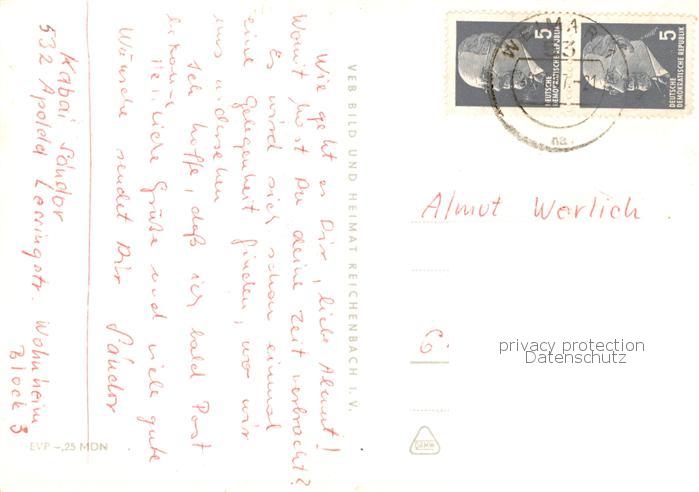 Wie geht es Dir, liebe Almut!
Womit hast Du deine Zeit verbracht?
Es wird sich schon einmal
eine Gelegenheit finden, wo wir
uns wiedersehen
Ich hoffe, daß ich bald Post
bekomme
Grüße und viele gute
Wünsche sendet Dir Sándor
Kabai Sándor
532 Apolda Lessingstr. Wohnheim
Block 3
EVP -,25 MDN
VEB BILD UND HEIMAT REICHENBACH I. V.
5
DEUTSCHE
DEMOKRATISCHE REPUBLIK
5
DEUTSCHE
DEMOKRATISCHE REPUBLIK
WEIMAR
na
Almut Warlich
privacy protection
Datenschutz